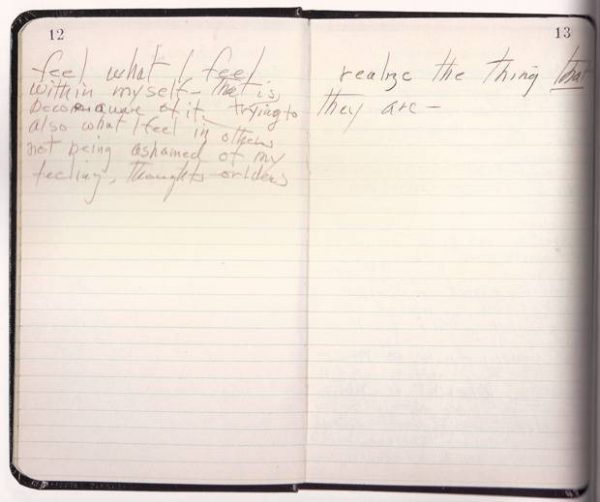 12
feel what I feel
within myself – that is
become aware of it, trying to
also what I feel in others
not being ashamed of my
feeling, thoughts – or ideas
13
realize the thing that
they are –